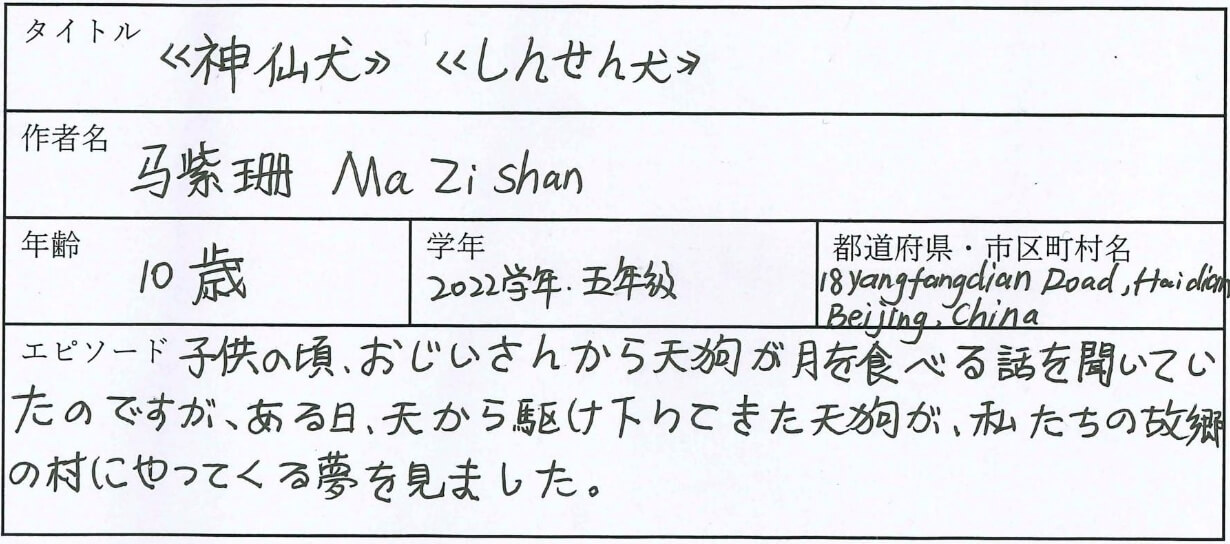 タイトル
《神仙犬》 《しんせん犬》
作者名
马紫珊 Ma Zi shan
年齢
10歳
学年
2022学年.五年级
都道府県・市区町村名
18 Yangfangdian Road, Haidian
Beijing, China
エピソード 子供の頃、おじいさんから天狗が月を食べる話を聞いてい
たのですが、ある日、天から駆け下りてきた天狗が、私たちの故郷
の村にやってくる夢を見ました。